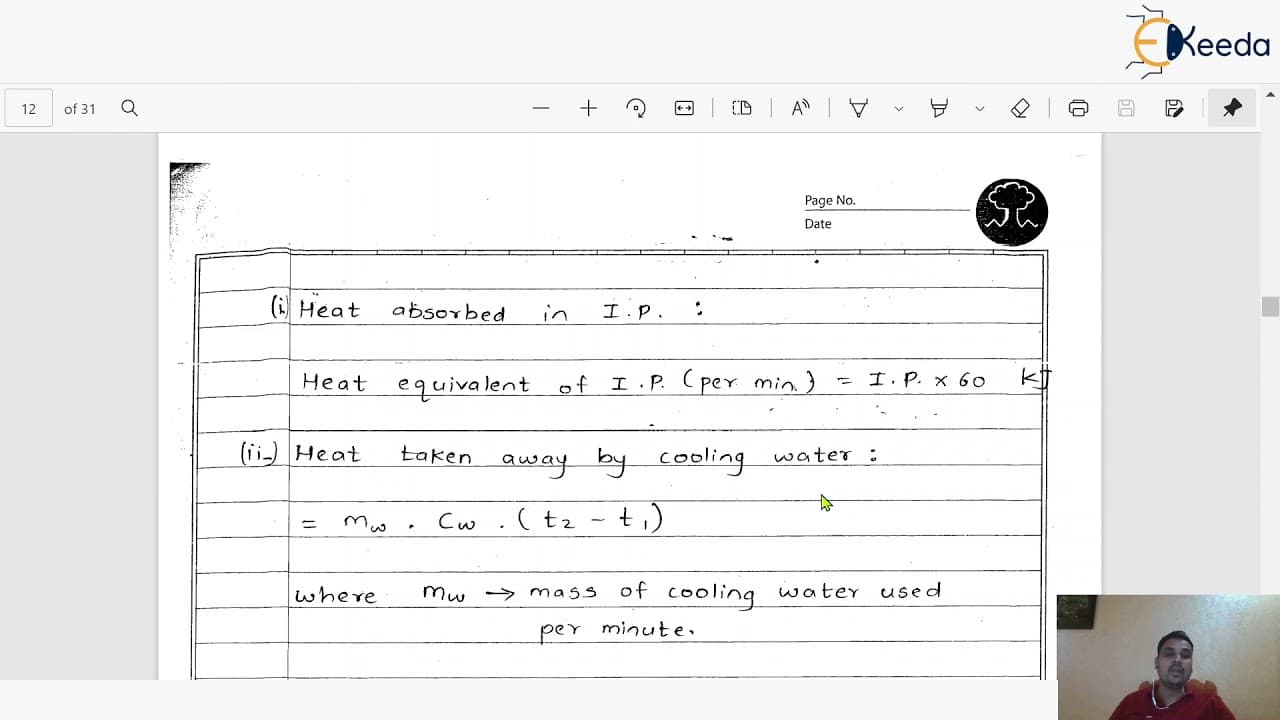 EKeeda
12 of 31
Page No.
Date
(i) Heat absorbed in I.P. :
Heat equivalent of I.P. (per min.) = I.P. x 60 kJ
(ii) Heat taken away by cooling water :
= mw . Cw . (t2 - t1)
where mw → mass of cooling water used
per minute.